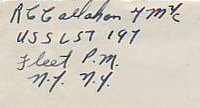 R C Callahan Y M 2/c
USS LST 197
Fleet P.M.
N.Y. N.Y.